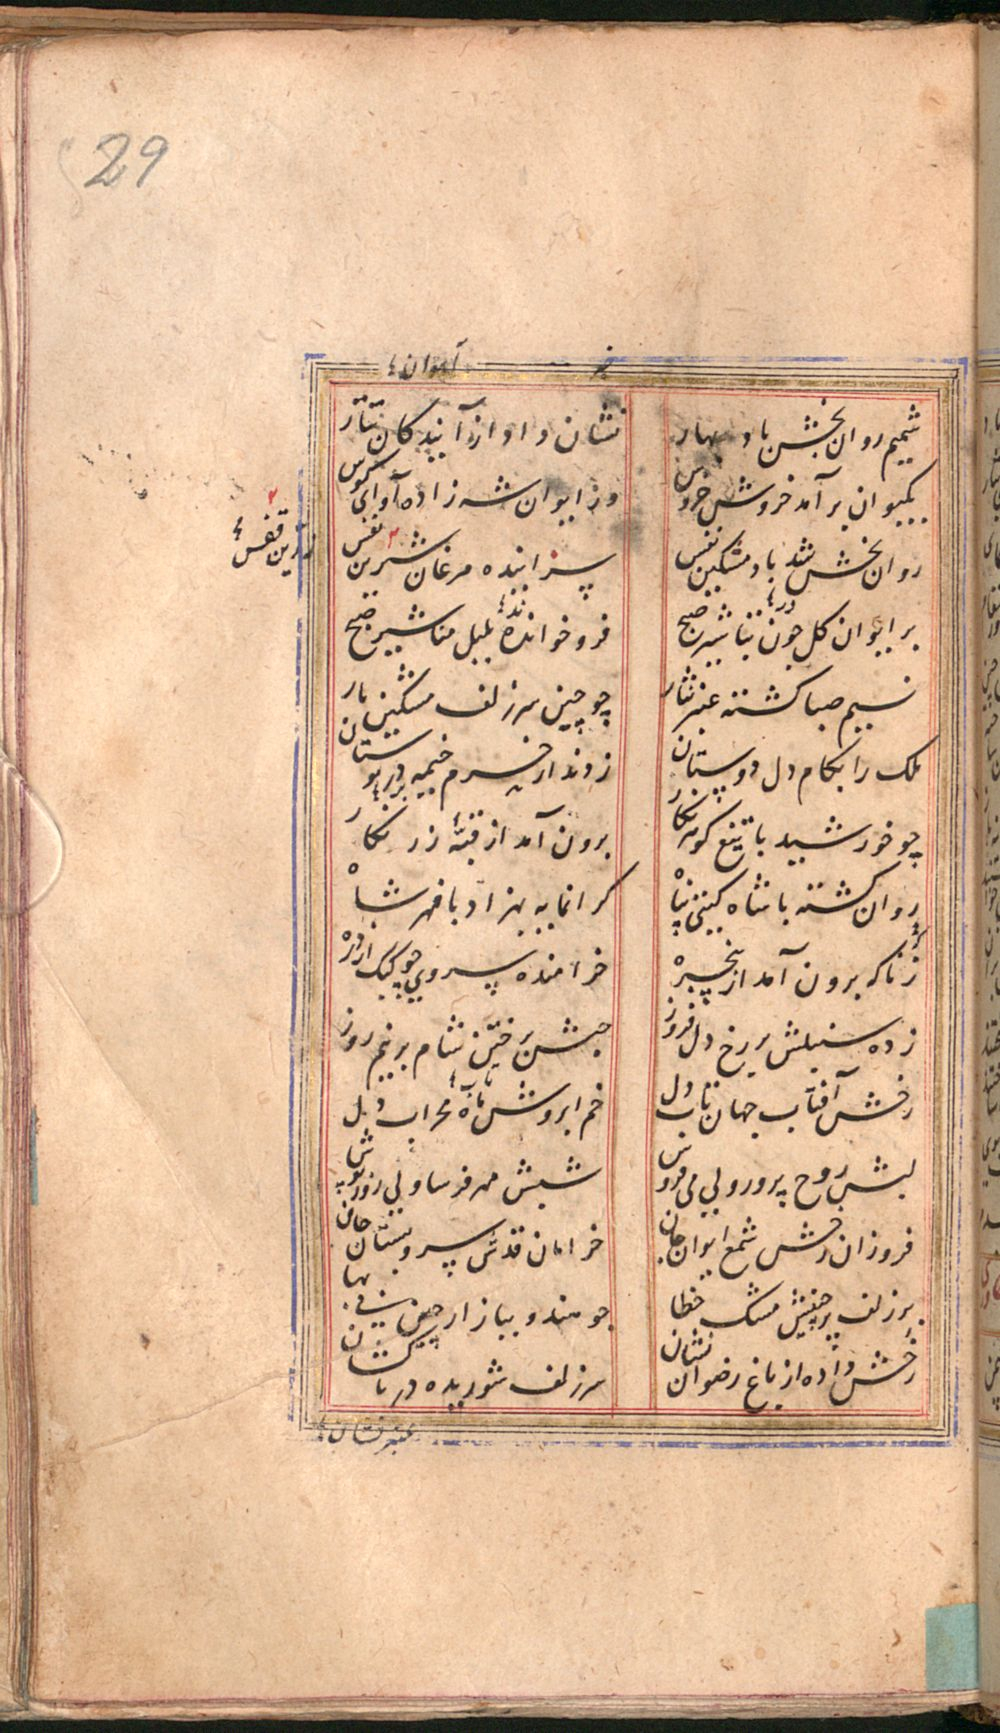 29
آهوان
شمیم روان بخش باد بهار نشان داد از آیندکان تتار
بکیوان بر آمد خروش خروس وز ایوان شه زاده آوای کوس
روان بخش شد باد مشکین نفس سراینده مرغان شیرین نفس
زرین قفس
بر ایوان کل چون تباشیر صبح فرو خوانده بلبل مناشیر صبح
نسیم صبا کشته عنبر نثار چو چین سر زلف مشکین یار
ملک را بکام دل دوستان زدند از خرم خیمه بر بوستان
چو خورشید با تیغ کوهر نکار برون آمد از قبه زر نکار
روان کشته با شاه کیتی پناه کرانمایه بهزاد با فهر شاه
ز ناکه برون آمد از پنجره خرامنده سروی چو کبک از دره
زده سنبلش بر رخ دل فروز جیش بر ختن شام بر نیم روز
رخش آفتاب جهان تاب دل خم ابروش ماه محراب دل
لبش روح پرور ولی می فروش شبش مه فرسا ولی روز پوش
فروزان رخش شمع ایوان جان خرامان قدش سرو بستان جان
بر زلف پر چینش مشک خطا چو هندو ببازار چین بی بها
رخش داده از باغ رضوان نشان سر زلف شوریده در پا کشان
عنبر فشان